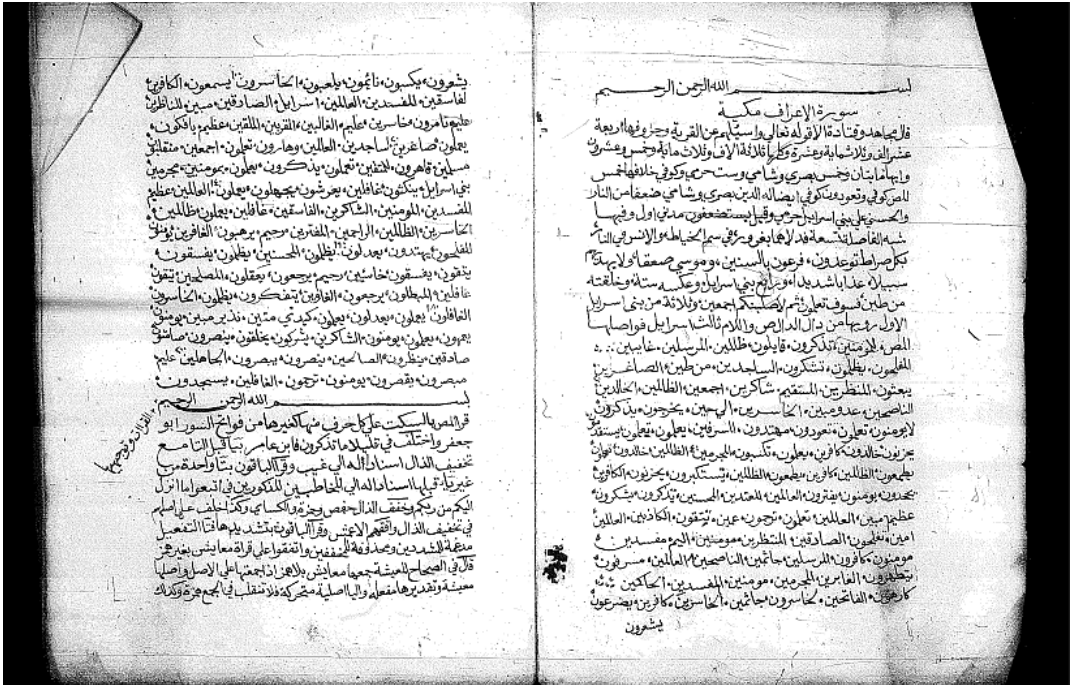 بسم الله الرحمن الرحيم
سورة الاعراف مكية
قال مجاهد وقتادة الا قوله تعالى واسئلهم عن القرية وحروفها اربعة
عشر الف وثلاثماية وعشرة وكلمها ثلاثة الاف وثلاثماية وخمس وعشرون
وايهامايتان وخمس بصري وشامي وست حرمي وكوفي خلافها خمس
المص كوفي وتعودون كوفي ايضا له الدين بصري وشامي ضعفا من النار
والحسنى على بني اسرايل حرمي وقيل يستضعفون مدني اول وفيها
شبه الفاصلة تسعة فدلاهما بغرور في سم الخياط والانس في النار
بكل صراط توعدون فرعون بالسنين وموسى صعقا ولا يهديهم
سبيلا عذابا شديدا ورابع بني اسرايل وعكسه ستة وخلقته
من طين فسوف تعلمون ثم لاصلبنكم اجمعين وثلاثة من بني اسرايل
الاول رويها من دال الدال ص واللام ثالث اسرايل فواصلها
المص للمؤمنين تذكرون قايلون ظالمين المرسلين غايبين
المفلحون يظلمون تشكرون الساجدين من طين الصاغرين
يبعثون المنظرين المستقيم شاكرين اجمعين الظالمين الخالدين
الناصحين عدو مبين الخاسرين الى حين تخرجون يذكرون
لا يومنون تعلمون تعودون مهتدون المسرفين يعلمون تعلمون يستقدمون
يحزنون خالدون كافرين يعلمون تكسبون المجرمين الظالمين خالدون تعملون
يطمعون الظالمين كافرين يطمعون الظالمين تستكبرون يحزنون الكافرين
يجحدون يومنون يفترون العالمين المعتدين المحسنين تذكرون يشكرون
عظيم مبين العالمين تعلمون ترحمون عمين تتقون الكاذبين العالمين
امين تفلحون الصادقين المنتظرين مومنين اليم مفسدين
مومنون كافرون المرسلين جاثمين الناصحين العالمين مسرفون
يتطهرون الغابرين المجرمين مومنين المفسدين الحاكمين
كارهون الفاتحين لخاسرون جاثمين الخاسرين كافرين يضرعون
يشعرون
يشعرون يكسبون نائمون يلعبون الخاسرون يسمعون الكافرين
لفاسقين المفسدين العالمين اسرايل الصادقين مبين للناظرين
عليم تامرون حاشرين عليم الغالبين المقربين الملقين عظيم يافكون
يعملون صاغرين ساجدين العالمين وهارون تعلمون اجمعين منقلبون
مسلمين قاهرون للمتقين تعملون يذكرون يعلمون بمومنين مجرمين
بني اسرايل ينكثون غافلين يعرشون تجهلون يعملون العالمين عظيم
المفسدين المومنين الشاكرين الفاسقين غافلين يعملون ظالمين
الخاسرين الظالمين الراحمين المفترين رحيم يرهبون الغافرين يومنون
المفلحون يهتدون يعدلون يظلمون المحسنين يظلمون يفسقون
يتقون يفسقون خاسئين رحيم يرجعون يعقلون المصلحين تتقون
غافلين المبطلون يرجعون الغاوين يتفكرون يظلمون الخاسرون
الغافلون يعملون يعدلون يعلمون كيدي متين نذير مبين يومنون
يعمهون يعلمون يومنون الشاكرين يشركون يخلقون ينصرون صامتون
صادقين ينظرون الصالحين ينصرون يبصرون الجاهلين عليم
مبصرون يقصرون يومنون ترحمون الغافلين يسجدون
بسم الله الرحمن الرحيم
قرا المص بالسكت على كل حرف منها كغيرها من فواتح السور ابو
جعفر واختلف في قليلا ما تذكرون فابن عامر بيا قبل التا مع
تخفيف الذال اسناد اله الى غيب وقرا الباقون بتا واحدة من
غير يا قبلها اسناد اله الى المخاطبين المذكورين في اتبعوا ما انزل
اليكم من ربكم وخفف الذال حفص وحمزة والكساي وكذا خلف على اصلهم
في تخفيف الذال وافقهم الاعمش وقرا الباقون بتشديدها فتا التفعيل
مدغمة للمشددين ومحذوفة للمخففين واتفقوا على قراة معايش بغير همز
قال في الصحاح المعيشة جمعها معايش بلا همز اذا جمعتها على الاصل واصلها
معيشة وتقديرها مفعلة واليا اصلية متحركة فلا تنقلب في الجمع همزة وكذلك